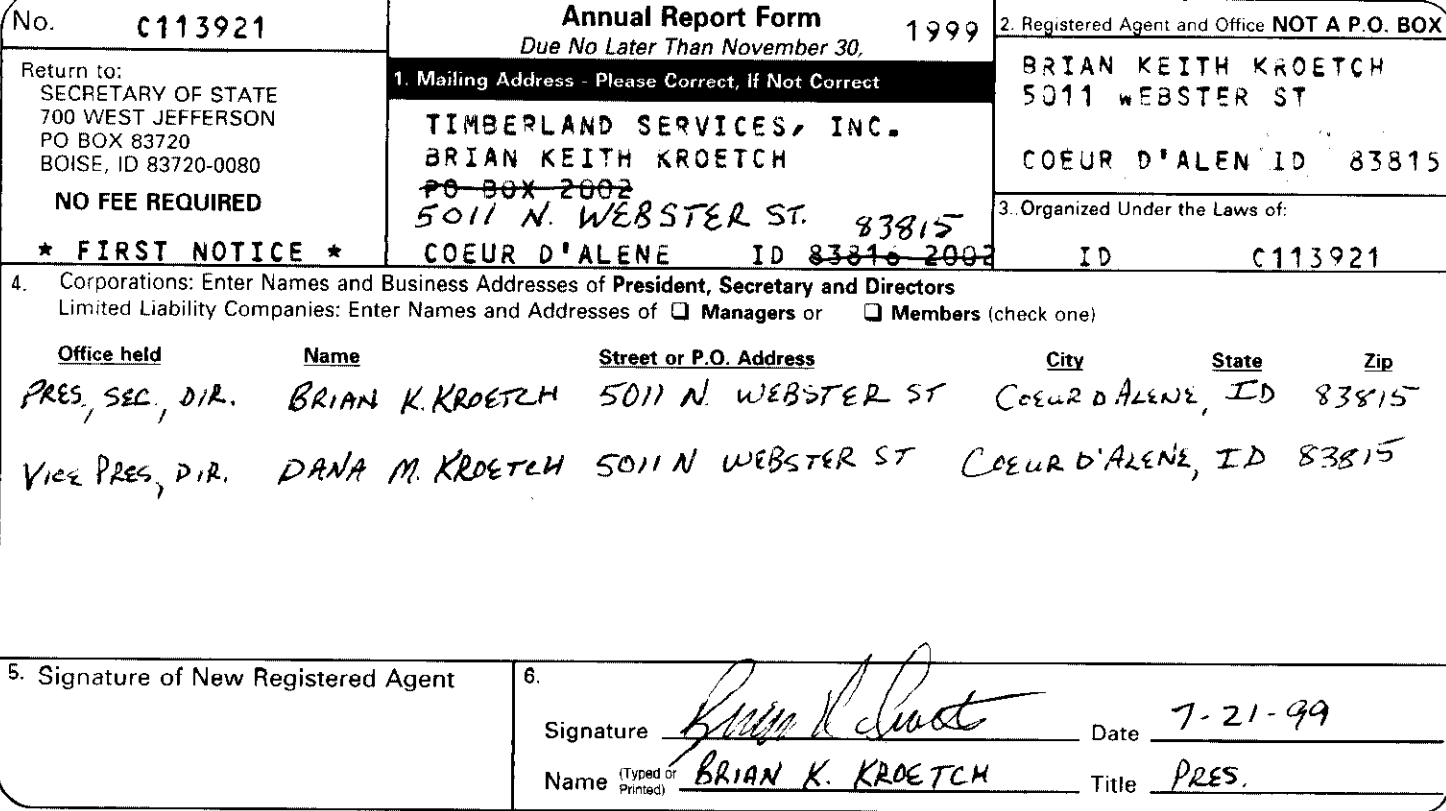 No. C113921
Return to:
SECRETARY OF STATE
700 WEST JEFFERSON
PO BOX 83720
BOISE, ID 83720-0080
NO FEE REQUIRED
* FIRST NOTICE *
Annual Report Form 1999
Due No Later Than November 30,
1. Mailing Address - Please Correct, If Not Correct
TIMBERLAND SERVICES, INC.
BRIAN KEITH KROETCH
PO BOX 2002
5011 N. WEBSTER ST. 83815
COEUR D'ALENE ID 83816-2002
2. Registered Agent and Office NOT A P.O. BOX
BRIAN KEITH KROETCH
5011 WEBSTER ST
COEUR D'ALEN ID 83815
3. Organized Under the Laws of:
ID C113921
4. Corporations: Enter Names and Business Addresses of President, Secretary and Directors
Limited Liability Companies: Enter Names and Addresses of ❑ Managers or ❑ Members (check one)
Office held Name Street or P.O. Address City State Zip
PRES., SEC., DIR. BRIAN K. KROETCH 5011 N. WEBSTER ST COEUR D ALENE, ID 83815
VICE PRES, DIR. DANA M. KROETCH 5011 N WEBSTER ST COEUR D'ALENE, ID 83815
5. Signature of New Registered Agent
6.
Signature Brian K Kroetch Date 7-21-99
Name (Typed or Printed) BRIAN K. KROETCH Title PRES.